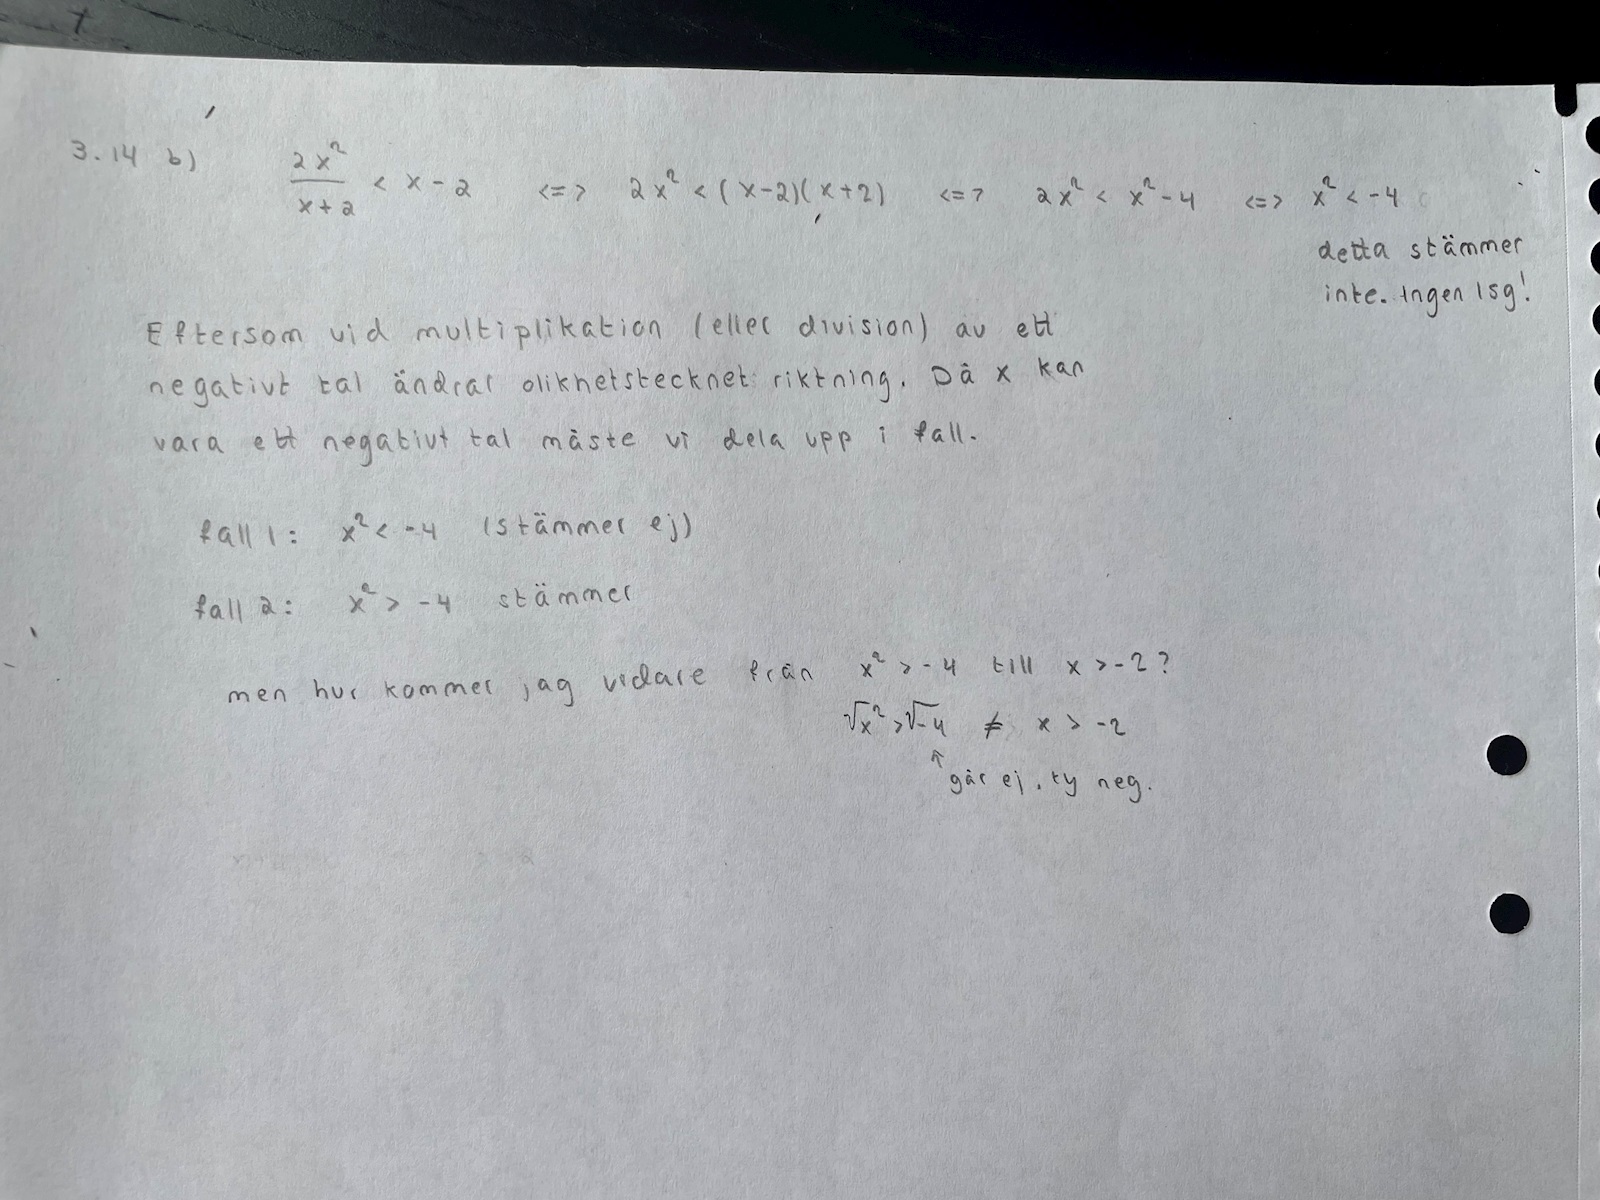 3.14 b) 2x²/(x+2) < x-2 <=> 2x² < (x-2)(x+2) <=> 2x² < x²-4 <=> x² < -4
detta stämmer
inte. Ingen lsg!
Eftersom vid multiplikation (eller division) av ett
negativt tal ändrar olikhetstecknet riktning. Då x kan
vara ett negativt tal måste vi dela upp i fall.
fall 1: x² < -4 (stämmer ej)
fall 2: x² > -4 stämmer
men hur kommer jag vidare från x² > -4 till x > -2?
√x² > √-4 ≠ x > -2
↑ går ej, ty neg.